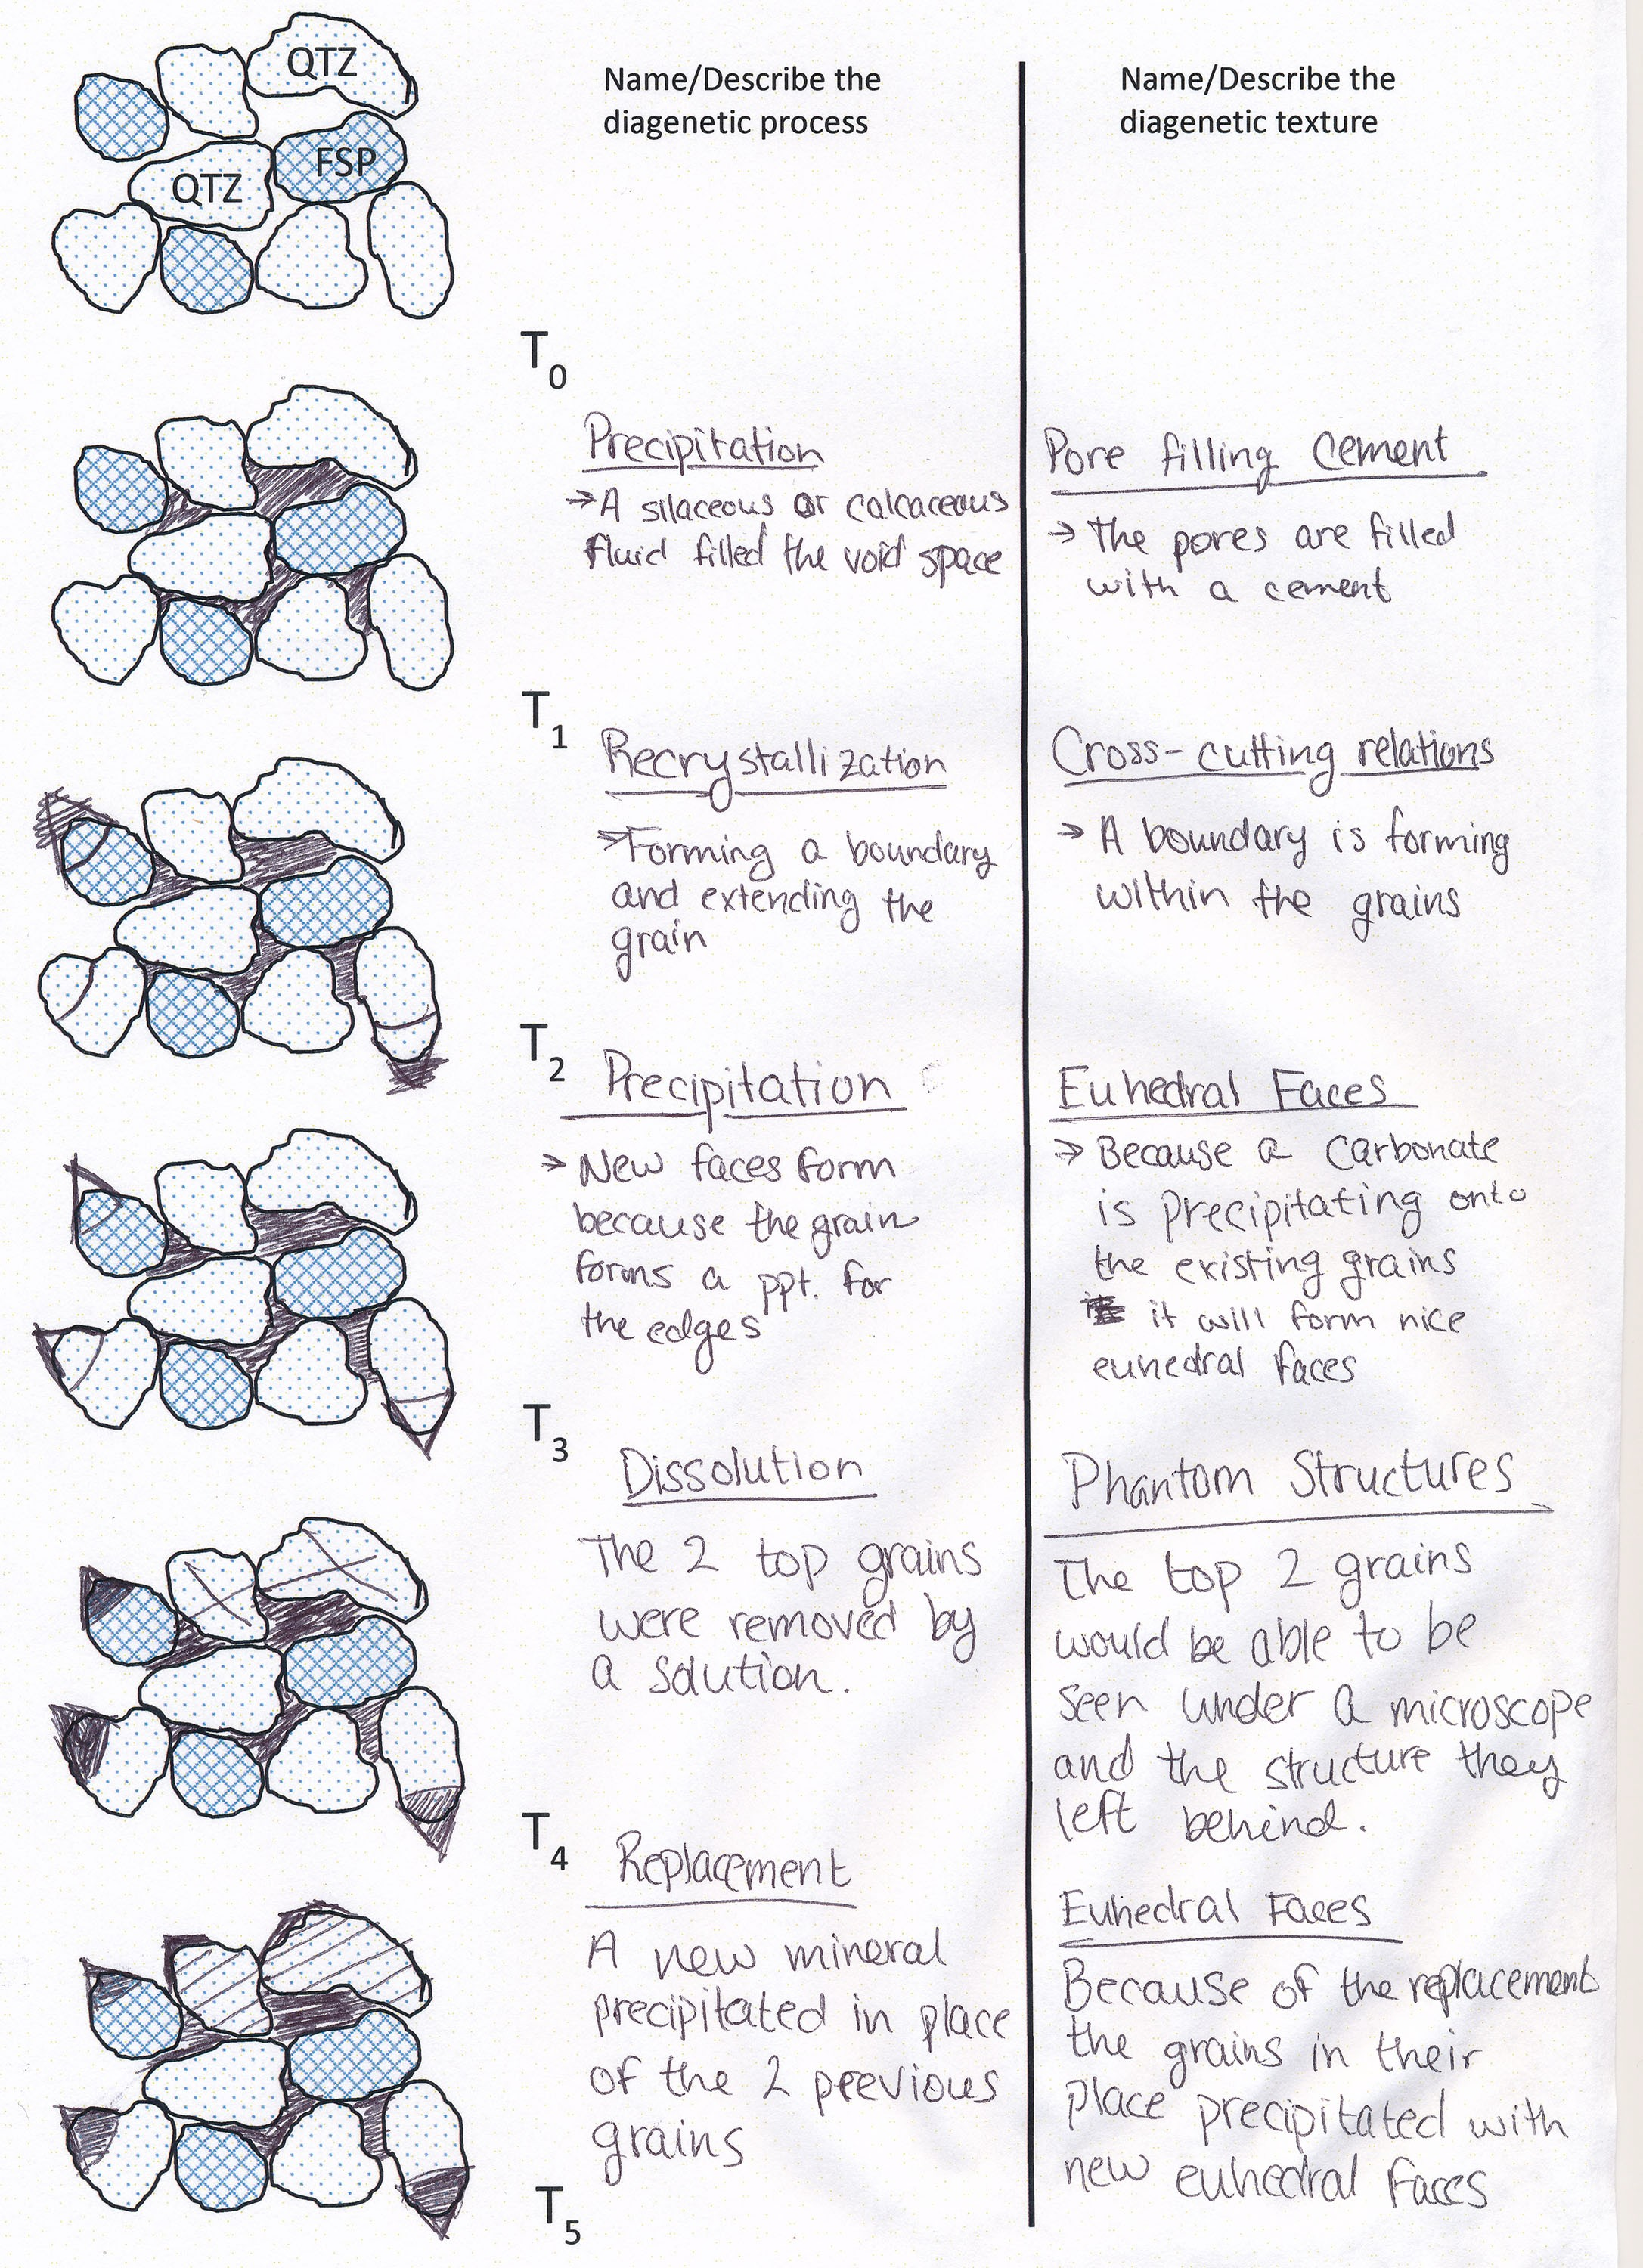 QTZ
FSP
QTZ
Name/Describe the
diagenetic process
Name/Describe the
diagenetic texture
T0
Precipitation
→ A silaceous or calcaceous
fluid filled the void space
Pore filling Cement
→ The pores are filled
with a cement
T1
Recrystallization
→ Forming a boundary
and extending the
grain
Cross-cutting relations
→ A boundary is forming
within the grains
T2
Precipitation
→ New faces form
because the grain
forms a ppt. for
the edges
Euhedral Faces
→ Because a Carbonate
is precipitating onto
the existing grains
it will form nice
euhedral faces
T3
Dissolution
The 2 top grains
were removed by
a solution.
Phantom Structures
The top 2 grains
would be able to be
seen under a microscope
and the structure they
left behind.
T4
Replacement
A new mineral
precipitated in place
of the 2 previous
grains
Euhedral Faces
Because of the replacement
the grains in their
place precipitated with
new euhedral faces
T5